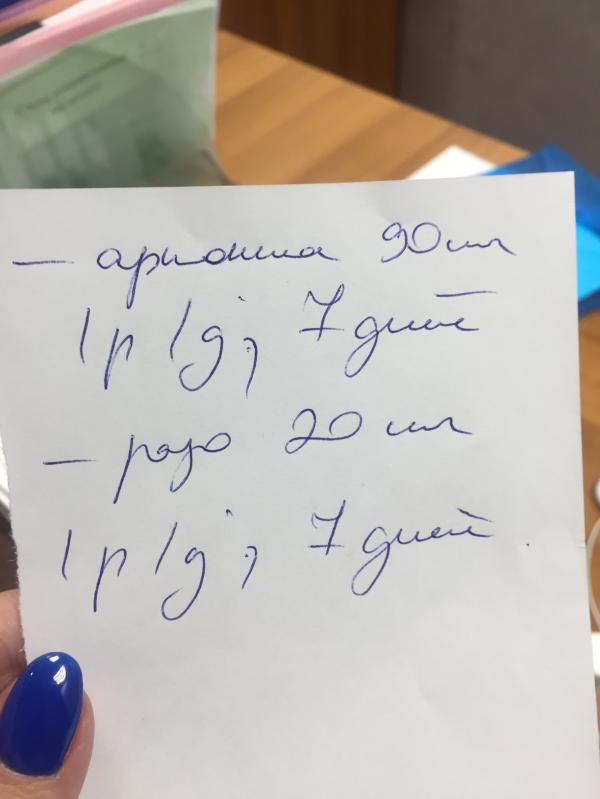 — аркоксиа 90 мг
1 р/д; 7 дней
— разо 20 мг
1 р/д; 7 дней